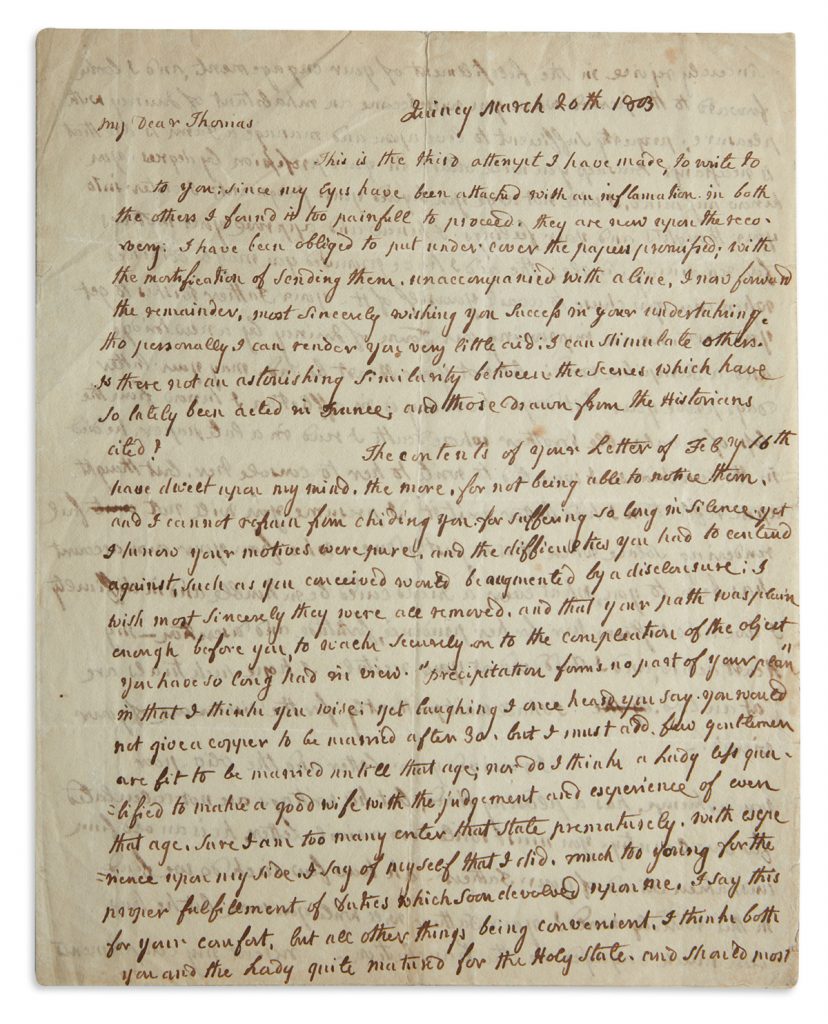 Quincy March 20th 1803
my Dear Thomas
This is the third attempt I have made, to write to
to you: since my Eyes have been attacked with an inflamation. in both
the others I found it too painfull to proceed. they are now upon the reco-
very: I have been obliged to put under cover the papers promised; with
the mortification of sending them. unaccompanied with a line, I now forward
the remainder, most sincerely wishing you success in your undertaking.
tho personally I can render you, very little aid: I can stimulate others.
is there not an astonishing similarity between the scenes which have
so lately been acted in France; and those drawn from the Historians
cited?
The contents of your Letter of Febry 16th
have dwelt upon my mind. the more. for not being able to notice them.
and I cannot refrain from chiding you. for suffering so long in silence. yet
I know your motives were pure. and the difficulties you had to contend
against, such as you conceived would be augmented by a disclosure: I
wish most sincerely they were all removed. and that your path was plain
enough before you, to walk securely on to the compleation of the object
you have so long had in view. "precipitation forms no part of your plan"
in that I think you wise: yet laughing I once heard you say. you would
not give a copper to be married after 30. but I must add. few gentlemen
are fit to be married untill that age; nor do I think a Lady less qua-
lified to make a good wife with the judgement and experience of even
that age. sure I am too many enter that state prematurely. with expe
=rience upon my side. I say of myself that I did. much too young for the
proper fulfillment of duties which soon devolved upon me. I say this
for your comfort. but all other things being convenient. I think both
you and the Lady quite matured for the Holy State. and should most